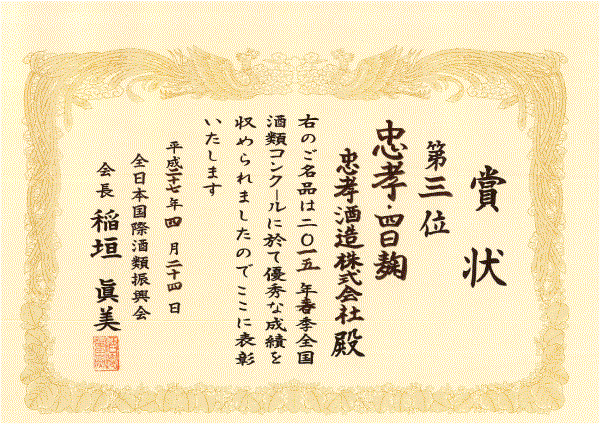 賞状
第三位
忠孝・四日麹
忠孝酒造株式会社殿
右のご名品は二〇一五年春季全国
酒類コンクールに於て優秀な成績を
収められましたのでここに表彰
いたします
平成二十七年四月二十四日
全日本国際酒類振興会
会長 稲垣眞美